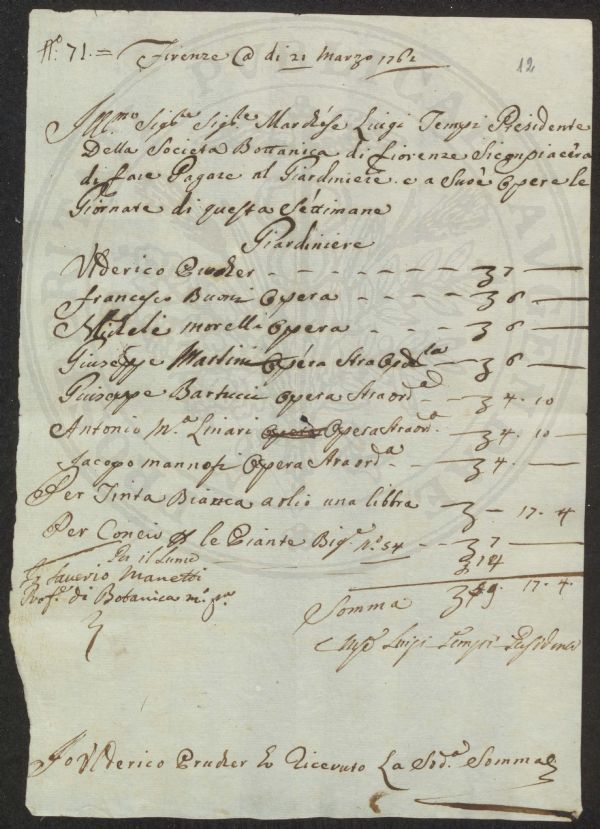 Nº. 71. = Firenze @ di 21 Marzo 1762
12
Ill.mo Sigre Sigre. Marchése Luigi Tempi Présidente
Della Società Bottanica di fiorenze Si
di fare Pagare al Giardiniere e a Suoè Opere le
Giornate di questa Séttimane
Giardiniere
Vlderico Prucker - - - - - - - 7 —
francesco Buoni Opéra - - - - 6 —
Michele morelli opéra - - - - 6 —
Giuséppe Martini Opéra Stra Ord.ia - 6 —
Giuseppe Bartucci opera Straord.a - 4. 10
Antonio M.a Linari Opera Straord.a - 4. 10 —
Jacopo mannosi Opera Straord.a - - 4. —
Per Tinta Bianca a olio una libbra — 17. 4
Per Concio le Piante Big.e nº. 54 - - 7 —
Per il Lume
14
Saverio Manetti
Prof.e di Botanica m.o p.a
Somma 17. 4.
Luigi Tempi Presidente
Io Vlderico Prucker ho Ricevuto La Sod.a Somma